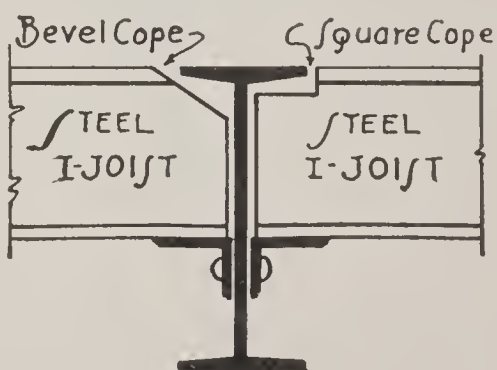 Bevel Cope
Square Cope
STEEL
I-JOIST
STEEL
I-JOIST